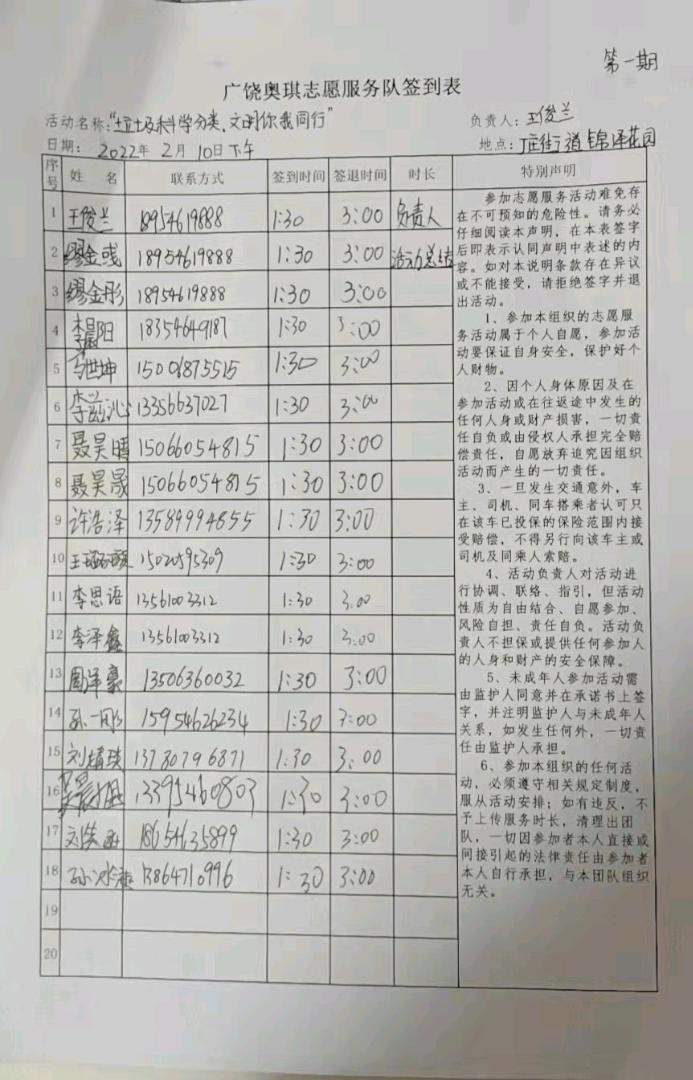 第一期
广饶奥琪志愿服务队签到表
活动名称:"垃圾科学分类,文明你我同行" 负责人:王俊兰
日期: 2022年 2月 10日下午 地点:丁庄街道锦泽花园
序号 姓 名 联系方式 签到时间 签退时间 时长 特别声明
1 王俊兰 18954619888 1:30 3:00 负责人
2 缪金彧 18954619888 1:30 3:00 活动总结
3 缪金彤 18954619888 1:30 3:00
4 李晨阳 18354649187 1:30 3:00
5 马世坤 15006875515 1:30 3:00
6 李兹沁 13356637027 1:30 3:00
7 聂昊晴 15066054815 1:30 3:00
8 聂昊晟 15066054815 1:30 3:00
9 许浩泽 13589994855 1:30 3:00
10 15020595309 1:30 3:00
11 李思语 13561003312 1:30 3:00
12 李泽鑫 13561003312 1:30 3:00
13 周泽豪 13506360032 1:30 3:00
14 孙一彤 15954626234 1:30 3:00
15 13780796871 1:30 3:00
16 13395460803 1:30 3:00
17 18654635899 1:30 3:00
18 13864710996 1:30 3:00
19
20
参加志愿服务活动难免存
在不可预知的危险性。请务必
仔细阅读本声明,在本表签字
后即表示认同声明中表述的内
容。如对本说明条款存在异议
或不能接受,请拒绝签字并退
出活动。
1、参加本组织的志愿服
务活动属于个人自愿,参加活
动要保证自身安全,保护好个
人财物。
2、因个人身体原因及在
参加活动或在往返途中发生的
任何人身或财产损害,一切责
任自负或由侵权人承担完全赔
偿责任,自愿放弃追究因组织
活动而产生的一切责任。
3、一旦发生交通意外,车
主、司机、同车搭乘者认可只
在该车已投保的保险范围内接
受赔偿,不得另行向该车主或
司机及同乘人索赔。
4、活动负责人对活动进
行协调、联络、指引,但活动
性质为自由结合、自愿参加、
风险自担、责任自负。活动负
责人不担保或提供任何参加人
的人身和财产的安全保障。
5、未成年人参加活动需
由监护人同意并在承诺书上签
字,并注明监护人与未成年人
关系,如发生任何外,一切责
任由监护人承担。
6、参加本组织的任何活
动,必须遵守相关规定制度,
服从活动安排;如有违反,不
予上传服务时长,清理出团
队,一切因参加者本人直接或
间接引起的法律责任由参加者
本人自行承担,与本团队组织
无关。